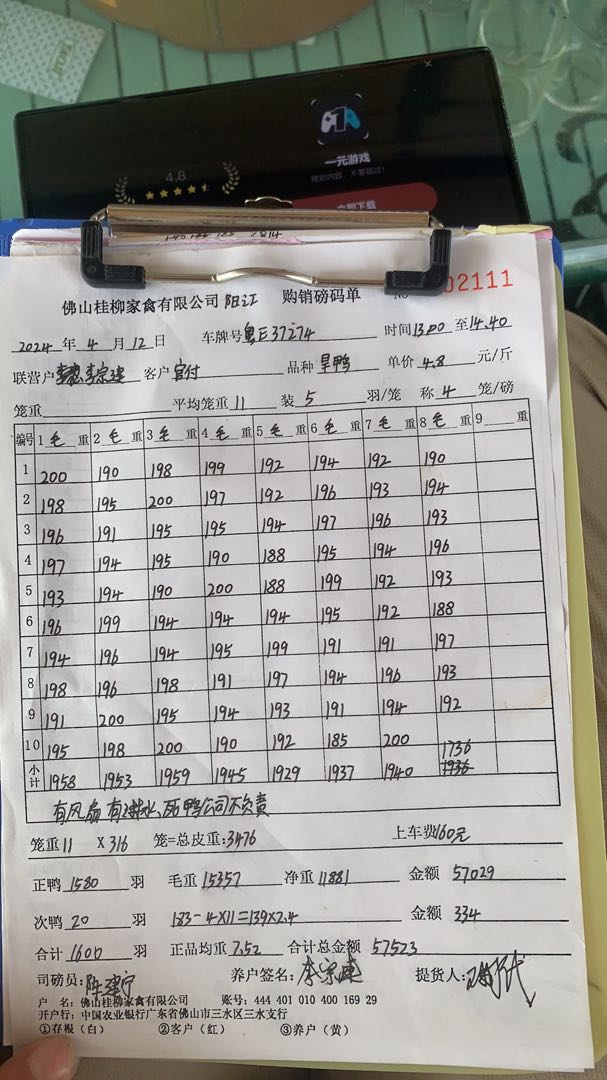 4.8
一元游戏
精彩内容，不要错过！
立即下载
佛山桂柳家禽有限公司 阳江 购销磅码单 No 02111
2024 年 4 月 12 日 车牌号 粤E37274 时间 13.00 至 14.40
联营户 李宗建 客户 宫付 品种 旱鸭 单价 4.8 元/斤
笼重 平均笼重 11 装 5 羽/笼 称 4 笼/磅
编号 1 毛 重 2 毛 重 3 毛 重 4 毛 重 5 毛 重 6 毛 重 7 毛 重 8 毛 重 9 重
1 200 190 198 199 192 194 192 190
2 198 195 200 197 192 196 193 194
3 196 191 195 195 194 197 196 193
4 197 194 195 190 188 195 194 196
5 193 194 190 200 188 199 192 193
6 196 199 194 194 194 195 192 188
7 194 196 194 195 199 191 191 197
8 198 196 198 191 197 194 196 193
9 191 200 195 194 193 191 194 192
10 195 198 200 190 192 185 200
小计 1958 1953 1959 1945 1929 1937 1940 1736 1936
有风扇 有进水、死鸭公司不负责
笼重 11 X 316 笼=总皮重:3476 上车费160元
正鸭 1580 羽 毛重 15357 净重 11881 金额 57029
次鸭 20 羽 183-4X11=139X2.4 金额 334
合计 1600 羽 正品均重 7.52 合计总金额 57523
司磅员: 陈建宁 养户签名: 李宗建 提货人:
户 名: 佛山桂柳家禽有限公司 账号: 444 401 010 400 169 29
开户行: 中国农业银行广东省佛山市三水区三水支行
①存根（白） ②客户（红） ③养户（黄）